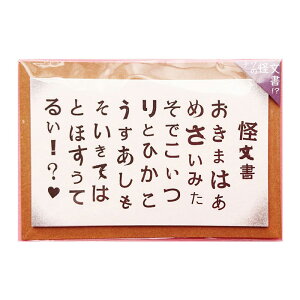 の怪文書!?
怪文書
おきまはぁ
めさいみた
そでこいつ
りとひかこ
うすあしも
そいきては
とほすぅて
るぃ!?♥